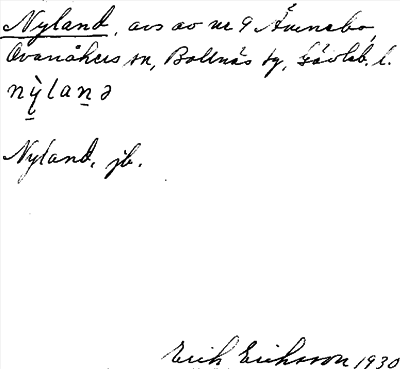 Nyland, avs av nr 9 Åvinebo,
Ovanåkers sn, Bollnäs tg, Gävleb. l.
nỳlanə
Nyland, jb.
Erik Eriksson 1930